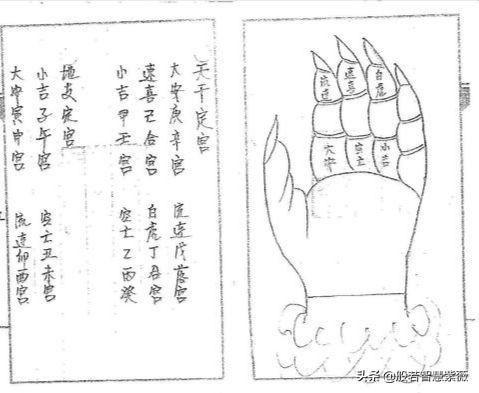 天干定宫
大安庚辛宫 流连戊落宫
速喜己合宫 白虎丁吞宫
小吉甲壬宫 空亡乙丙癸
地支定宫
小吉子午宫 空亡丑未宫
大安寅申宫 流连卯酉宫
流连 速喜 白虎
大安 空亡 小吉
头条 @般若智慧紫薇